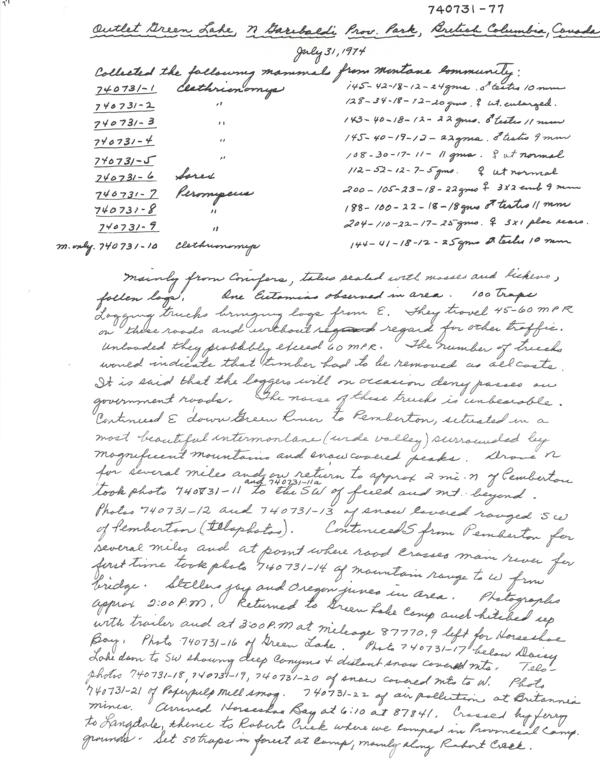 740731-77
Outlet Green Lake, N Garibaldi Prov. Park, British Columbia, Canada
July 31, 1974
Collected the following mammals from Montane Community:
740731-1 Clethrionomys 145-42-18-12-24gms. ♂ testis 10 mm
740731-2 " 128-34-18-12-20gms. ♀ ut. enlarged.
740731-3 " 143-40-18-12-22gms. ♂ testis 11 mm
740731-4 " 145-40-19-12-22gms. ♂ testis 9 mm
740731-5 " 108-30-17-11-11 gms. ♀ ut normal
740731-6 Sorex 112-52-12-7-5gms. ♀ ut normal
740731-7 Peromyscus 200-105-23-18-22gms ♀ 3x2 emb 9 mm
740731-8 " 188-100-22-18-18gms ♂ testis 11 mm
740731-9 " 204-110-22-17-25gms. ♀ 3x1 plac scars.
m. only. 740731-10 Clethrionomys 144-41-18-12-25gms ♂ testis 10 mm
Mainly from Conifers, talus sealed with mosses and lichens,
fallen logs. One Eutamias observed in area. 100 traps
Logging trucks bringing logs from E. They travel 45-60 MPR
on these roads and without regard for other traffic.
Unloaded they probably exceed 60 MPR. The number of trucks
would indicate that timber had to be removed at all costs.
It is said that the loggers will on occasion deny passes on
government roads. The noise of these trucks is unbearable.
Continued E down Green River to Pemberton, situated in a
most beautiful intermontane (wide valley) surrounded by
magnificent mountains and snow covered peaks. Drove N
for several miles and on return to approx 2 mi. N of Pemberton
took photo 740731-11 and 740731-11a to the SW of field and mt. beyond.
Photos 740731-12 and 740731-13 of snow covered ranges SW
of Pemberton (telephotos). Continued S from Pemberton for
several miles and at point where road crosses main river for
first time took photo 740731-14 of mountain range to W frm
bridge. Stellers jay and Oregon junco in area. Photographs
approx 2:00 P.M. Returned to Green Lake Camp and hitched up
with trailer and at 3:00 P.M at mileage 87770.9 left for Horseshoe
Bay. Photo 740731-16 of Green Lake. Photo 740731-17 below Daisy
Lake dam to SW showing deep canyon + distant snow covered mts. Tele-
photos 740731-18, 740731-19, 740731-20 of snow covered mts to W. Photo
740731-21 of Paperpulp Mill smog. 740731-22 of air pollution at Britannia
mines. Arrived Horseshoe Bay at 6:10 at 87841. Crossed by ferry
to Langdale, thence to Roberts Creek where we camped in Provincial Camp
grounds. Set 50 traps in forest at camp, mainly along Robert Creek.